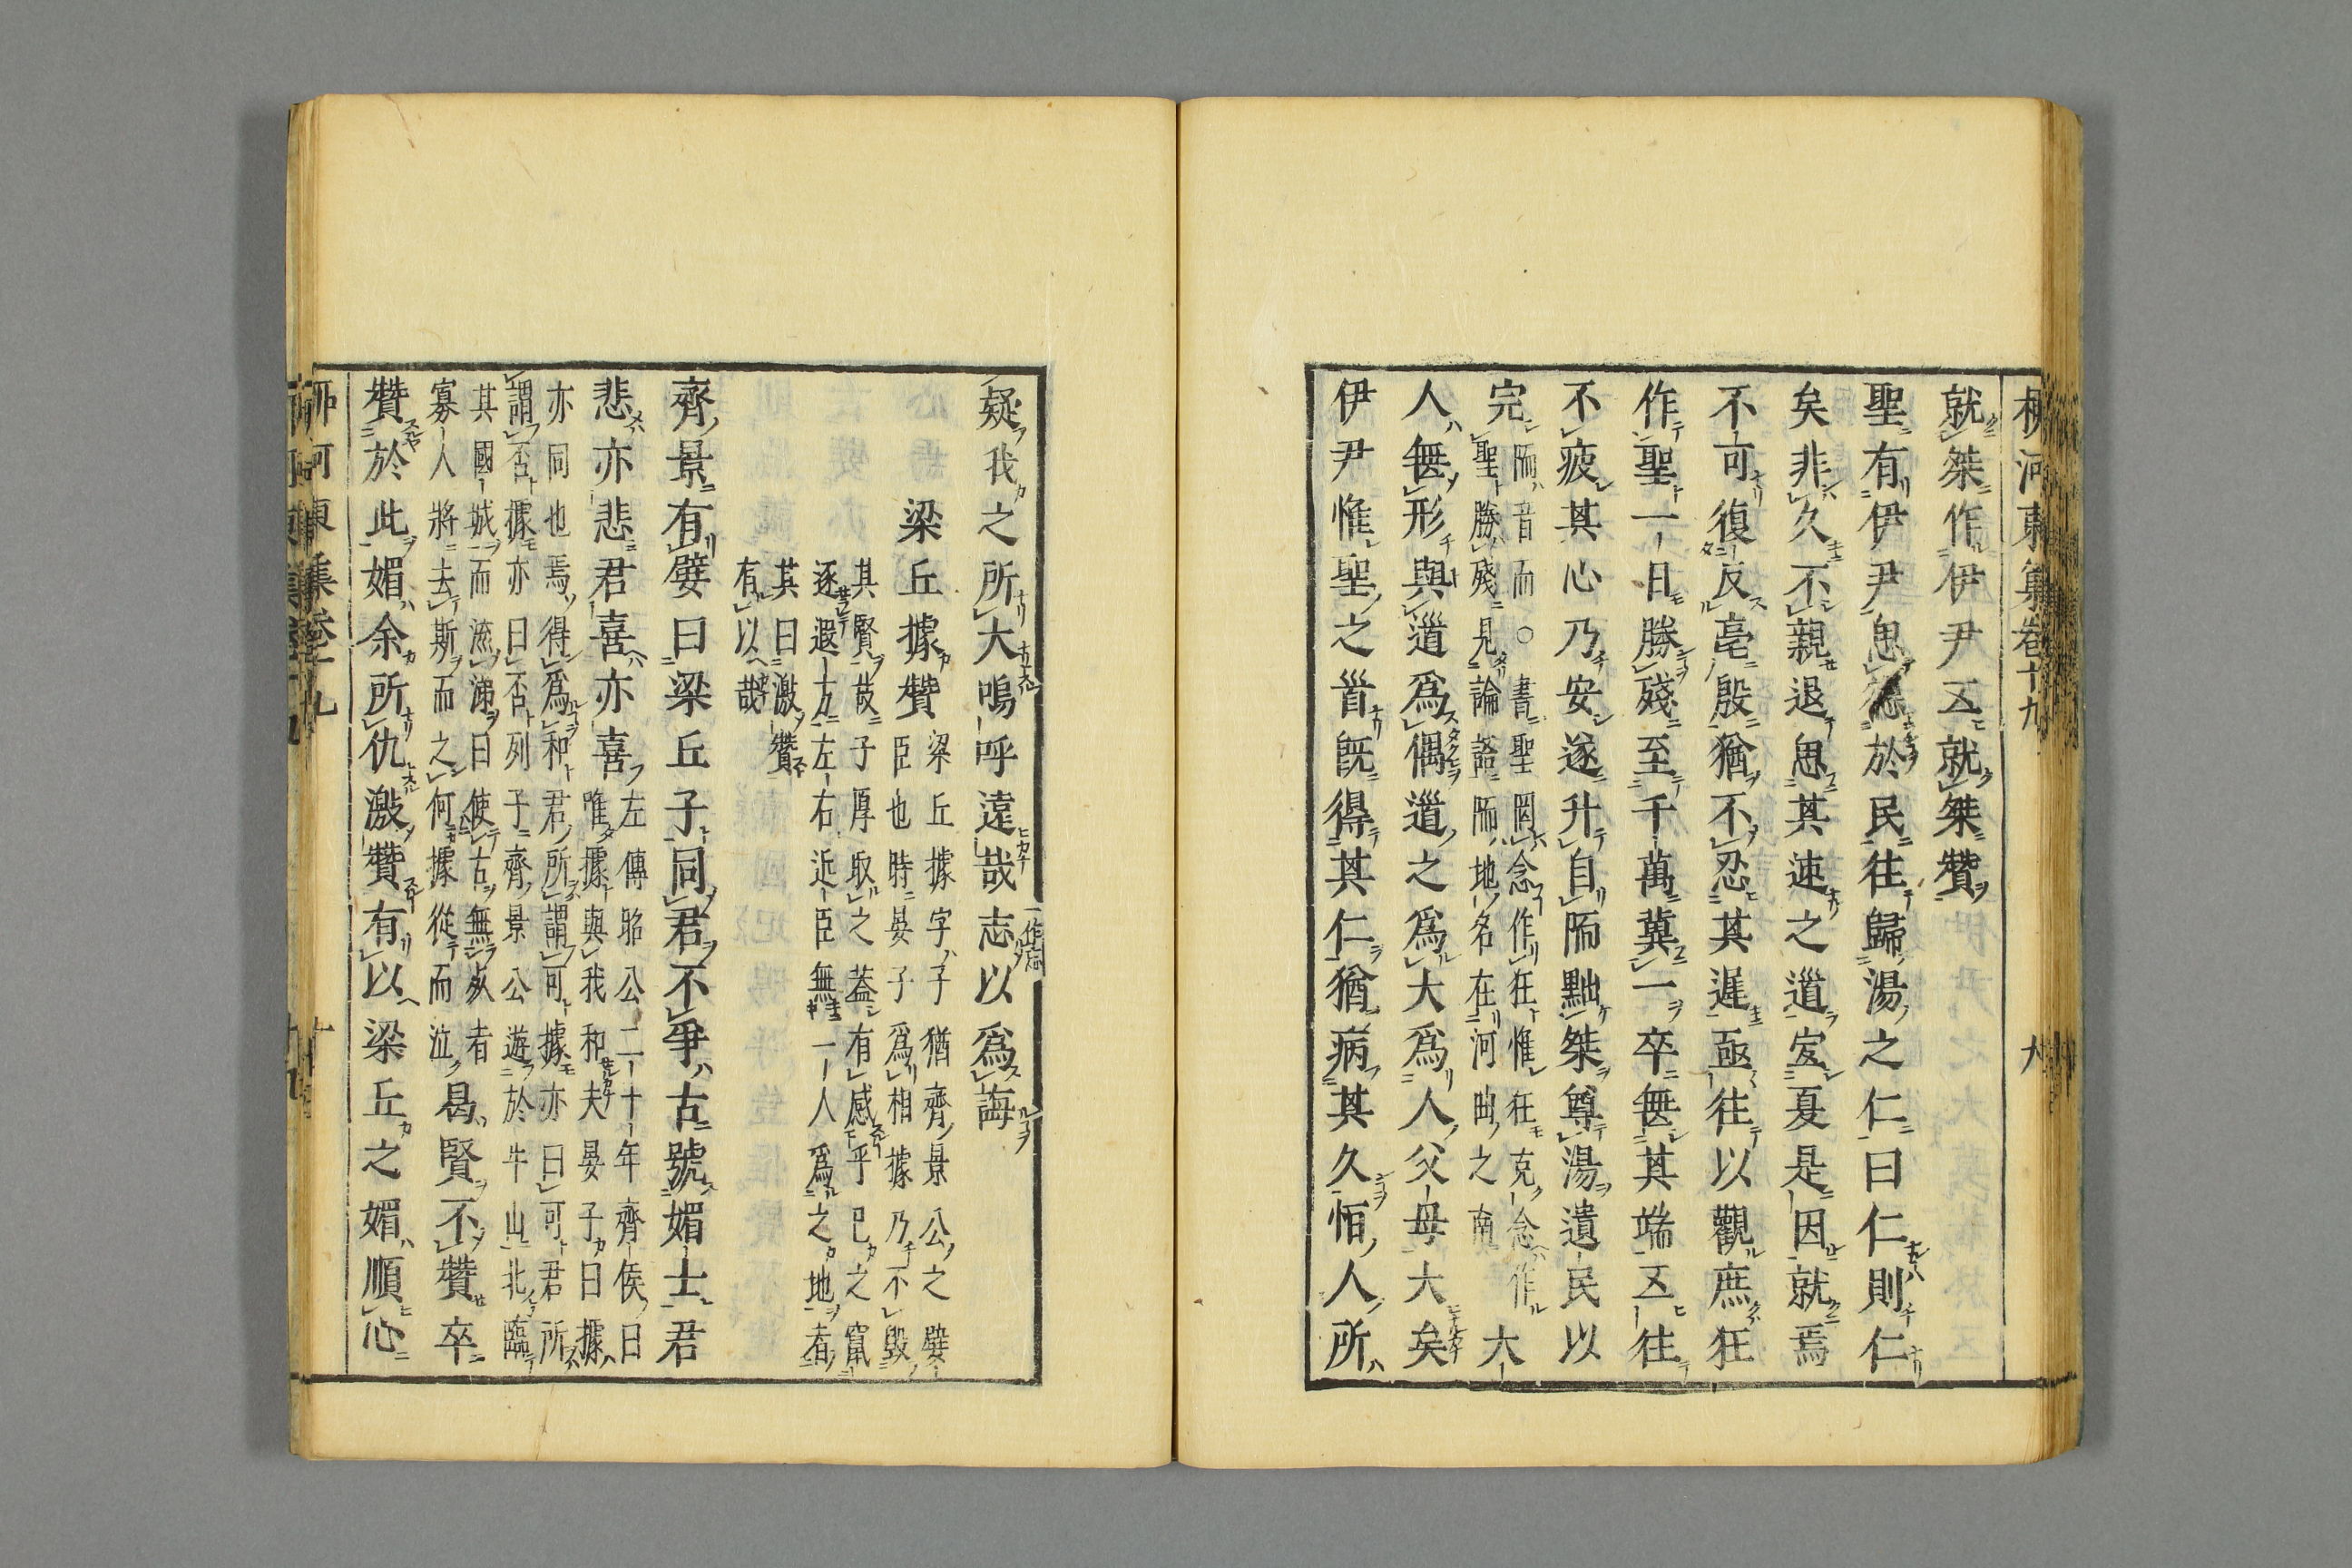 柳河東集卷十九 九
就桀作伊尹五就桀贊
聖有伊尹思德於民往歸湯之仁曰仁則仁
矣非久不親退思其速之道宜夏是因就焉
不可復反亳殷猶不忍其遲亟往以觀庶狂
作聖一日勝殘至千萬冀一卒無其端五往
不疲其心乃安遂升自陑黜桀尊湯遺民以
完
陑音而○書聖罔念作狂惟狂克念作
聖勝殘見論語陑地名在河曲之南
大
人無形與道爲偶道之爲大爲人父母大矣
伊尹惟聖之首既得其仁猶病其久恒人所
疑我之所大嗚呼遠哉志以爲誨
梁丘據贊
梁丘據字子猶齊景公之嬖
臣也時晏子爲相據乃不毀
其賢故子厚取之蓋有感乎巳之竄
逐遐方左右近臣無一人爲之地者
其曰激贊
有以哉
齊景有嬖曰梁丘子同君不爭古號媚士君
悲亦悲君喜亦喜
左傳昭公二十年齊侯曰
唯據與我和夫晏子曰據
亦同也焉得爲和君所謂可據亦曰可君所
謂否據亦曰否列子齊景公遊於牛山北臨
其國城而流涕曰使古無死者
寡人將去斯而之何據從而泣
曷賢不贊卒
贊於此媚余所仇激贊有以梁丘之媚順心
柳河東集卷十九